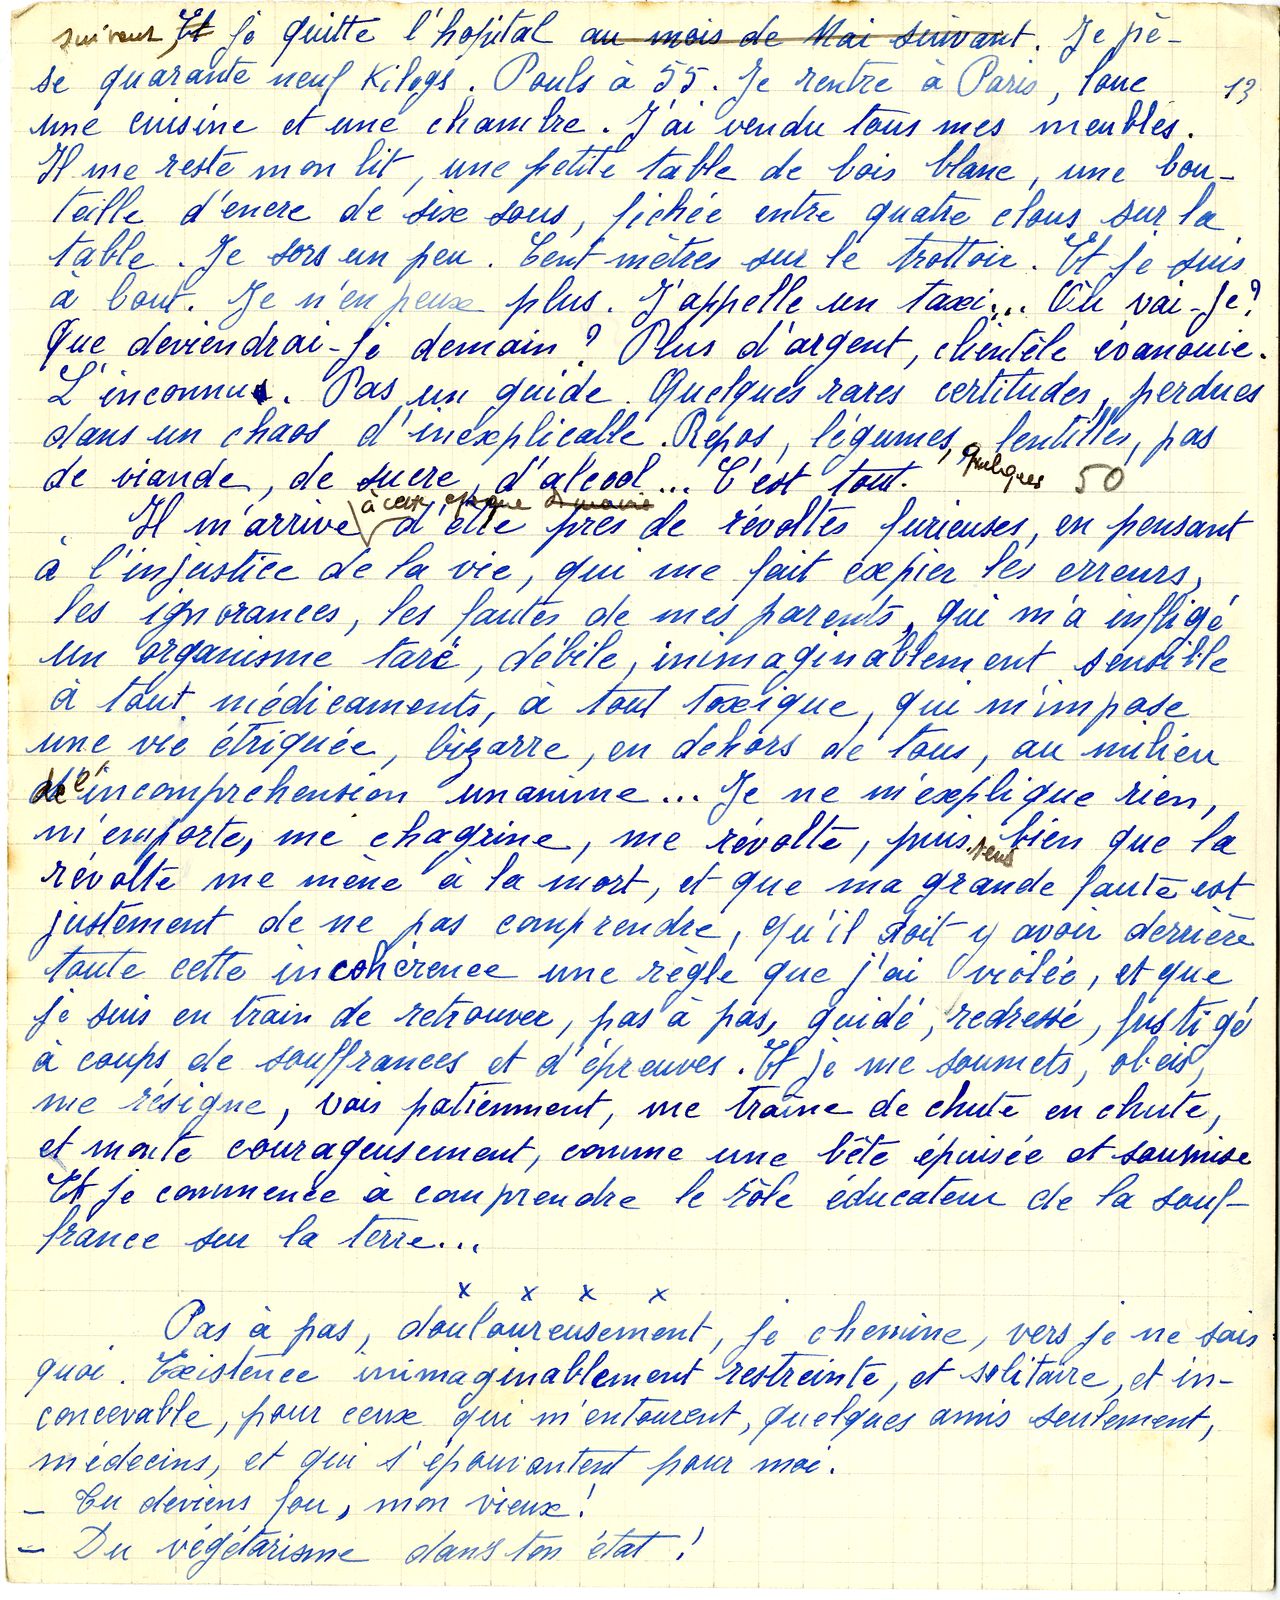 suivent, Et je quitte l'hopital au mois de Mai suivant. Je pè-
se quarante neuf Kilogs. Pouls à 55. Je rentre à Paris, loue 13
une cuisine et une chambre. J'ai vendu tous mes meubles.
Il me reste mon lit, une petite table de bois blanc, une bou-
teille d'encre de six sous, fichée entre quatre clous sur la
table. Je sors un peu. Cent mètres sur le trottoir. Et je suis
à bout. Je n'en peux plus. J'appelle un taxi... Où vai-je?
Que deviendrai-je demain? Plus d'argent, clientèle évanouie.
L'inconnu. Pas un guide. Quelques rares certitudes, perdues
dans un chaos d'inexplicable. Repos, légumes, lentilles, pas
de viande, de sucre, d'alcool... C'est tout. quelques 50
à cette époque
Il m'arrive d'elle près de révoltes furieuses, en pensant
à l'injustice de la vie, qui me fait expier les erreurs,
les ignorances, les fautes de mes parents, qui m'a infligé
un organisme taré, débile, inimaginablement sensible
à tout médicaments, à tout toxique, qui m'impose
une vie étriquée, bizarre, en dehors de tous, au milieu
de l'incompréhension unanime... Je ne m'explique rien,
m'emporte, me chagrine, me révolte, puis sens bien que la
révolte me mène à la mort, et que ma grande faute est
justement de ne pas comprendre, qu'il doit y avoir derrière
toute cette incohérence une règle que j'ai violée, et que
je suis en train de retrouver, pas à pas, guidé, redressé, fustigé
à coups de souffrances et d'épreuves. Et je me soumets, obéis,
me résigne, vais patiemment, me traîne de chute en chute,
et monte courageusement, comme une bête épuisée et soumise
Et je commence à comprendre le rôle éducateur de la souf-
france sur la terre...
x x x x
Pas à pas, douloureusement, je chemine, vers je ne sais
quoi. Existence inimaginablement restreinte, et solitaire, et in-
concevable, pour ceux qui m'entourent, quelques amis seulement,
médecins, et qui s'épouvantent pour moi.
– Tu deviens fou, mon vieux!
– Du végétarisme dans ton état!